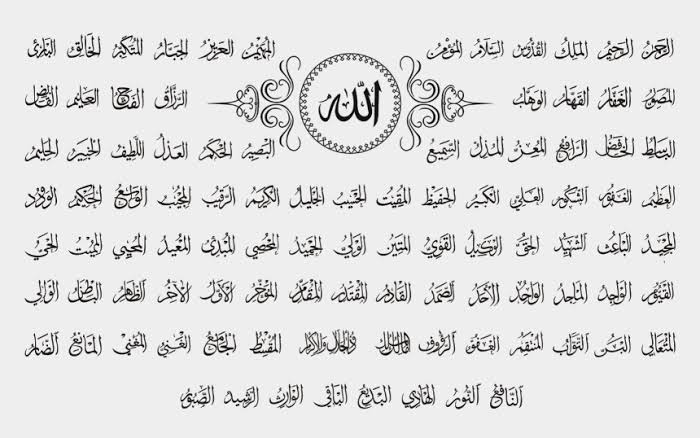 الرحمن الرحيم الملك القدوس السلام المؤمن المهيمن العزيز الجبار المتكبر الخالق البارئ
الله
المصور الغفار القهار الوهاب الرزاق الفتاح العليم القابض
الباسط الخافض الرافع المعز المذل السميع البصير الحكم العدل اللطيف الخبير الحليم
العظيم الغفور الشكور العلي الكبير الحفيظ المقيت الحسيب الجليل الكريم الرقيب المجيب الواسع الحكيم الودود
المجيد الباعث الشهيد الحق الوكيل القوي المتين الولي الحميد المحصي المبدئ المعيد المحيي المميت الحي
القيوم الواجد الماجد الواحد الأحد الصمد القادر المقتدر المقدم المؤخر الأول الآخر الظاهر الباطن الوالي
المتعالي البر التواب المنتقم العفو الرؤوف مالك الملك ذو الجلال والإكرام المقسط الجامع الغني المغني المانع الضار
النافع النور الهادي البديع الباقي الوارث الرشيد الصبور